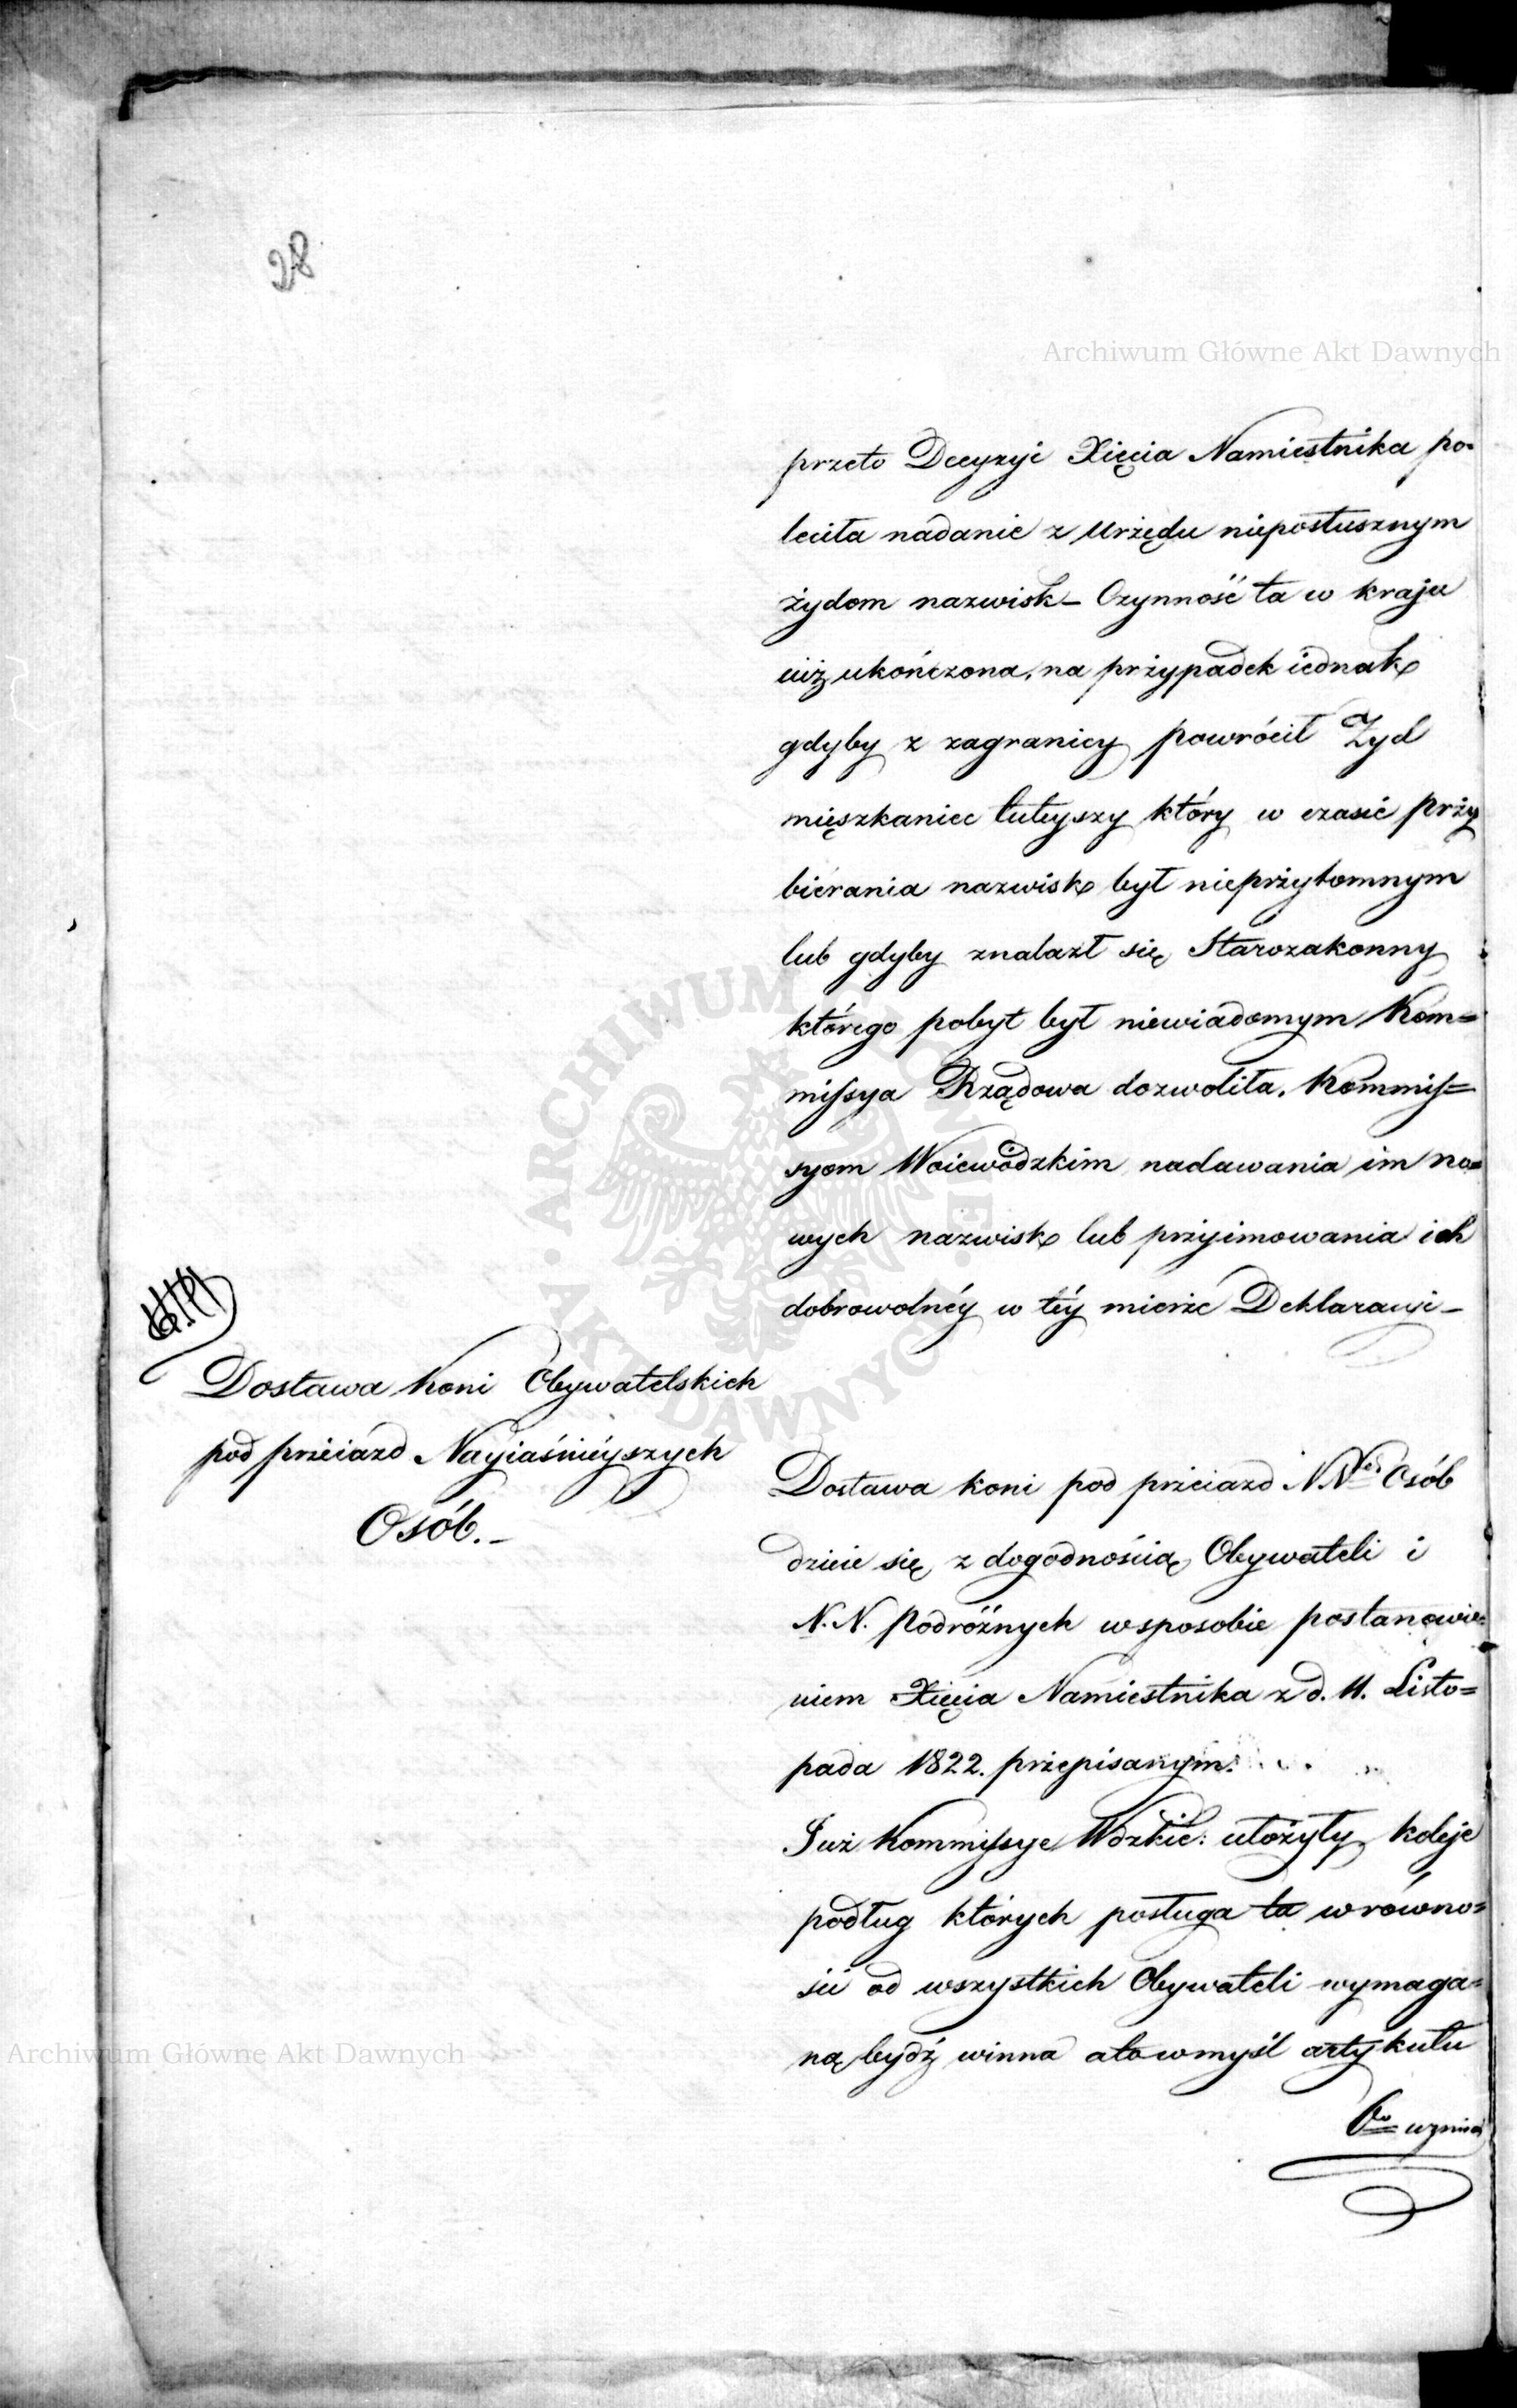 28
Archiwum Główne Akt Dawnych
przeto Decyzyje Xięcia Namiestnika po-
leciła nadanie z Urzędu nieposłusznym
żydom nazwisk – Czynność ta w kraju
iuż ukończona, na przypadek iednak
gdyby z zagranicy powrócił Żyd
mięszkaniec tuteyszy który w czasie przy
bierania nazwisk był nieprzytomnym
lub gdyby znalazł się Starozakonny
którego pobyt był niewiadomym Kom=
missya Rządowa dozwoliła, Kommis=
syom Woiewódzkim nadawania im no=
wych nazwisk lub przyimowania ich
dobrowolnéy w téy mierze Deklaracyi –
Dostawa Koni Obywatelskich
pod przeiazd Nayiaśnieyszych
Osób. –
Dostawa koni pod przeiazd N.N. Osób
dzieie się z dogodnością Obywateli i
N.N. Podróżnych w sposobie postanowie=
niem Xięcia Namiestnika z d. 11. Listo=
pada 1822. przepisanym.
Już Kommissye Wdzkie: ułożyły koleje
podług których posługa ta w równo=
ści od wszystkich Obywateli wymaga=
ną bydź winna a to w myśl artykułu
Archiwum Główne Akt Dawnych
ARCHIWUM GŁÓWNE • AKT DAWNYCH •